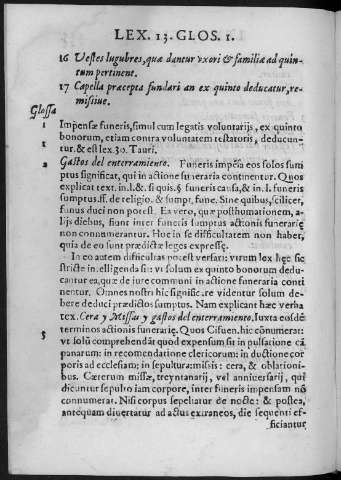 LEX. 13. GLOS. 1.
16 Vestes lugubres, quæ dantur vxori & familiæ ad quin-
tum pertinent.
17 Capella præcepta fundari an ex quinto deducatur, re-
missiue.
Glossa
1 Impensæ funeris, simul cum legatis voluntarijs, ex quinto
bonorum, etiam contra voluntatem testatoris, deducun-
tur. & est lex. 30. Tauri.
2 Gastos del enterramiento. Funeris impẽsa eos solos sum
ptus significat, qui in actione funeraria continentur. Quos
explicat text. in.l.&. si quis. § funeris causa,& in.l. funeris
sumptus.ff. de religio. & sumpt, fune. Sine quibus, scilicet,
funus duci non potest. Ea vero, quæ post humationem, a-
lijs diebus, fiunt inter funeris sumptus actionis funerariæ
non connumerantur. Hoc in se difficultatem non haber,
quia de eo sunt prædictæ leges expressę.
In eo autem difficultas potest versari: vtrum lex hęc sic
stricte intelligenda sit: vt solum ex quinto bonorum dedu-
cantur ea, quæ de iure communi in actione funeraria conti
nentur. Omnes nostri hic significare videntur solum de-
bere deduci prædictos sumptus. Nam explicant hæc verba
tex. Cera y Missas y gastos del enterramiento, Iuxta eosdẽ
terminos actionis funerarię. Quos Cifuen. hic cõnumerat:
3 vt solũ comprehendãt quod expensum sit in pulsatione cã
panarum: in recomendatione clericorum: in ductione cor
poris ad ecclesiam: in sepultura: missis: cera, & oblationi-
bus. Cæterum missæ, treyntanarij, vel anniversarij, qui
dicuntur sepulto iam corpore, inter funeris impensam nõ
connumerant. Nisi corpus sepeliatur de nocte: & postea,
antequam diuertatur ad actus extraneos, die sequenti ef-
ficiantur